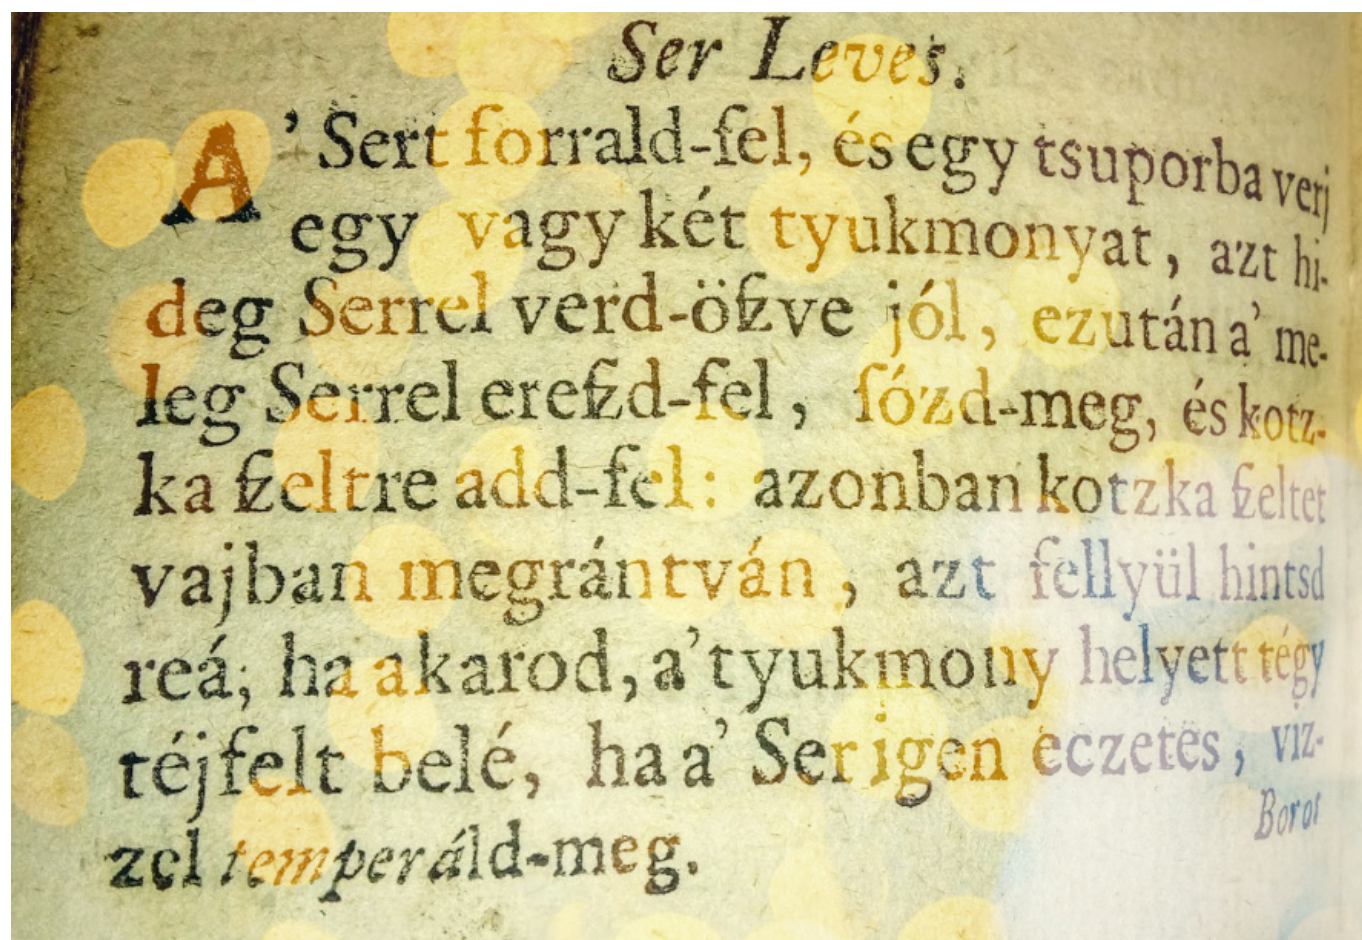 Ser Leves.
A' Sert forrald-fel, és egy tsuporba verj
egy vagy két tyukmonyat, azt hi-
deg Serrel verd-öſzve jól, ezután a' me-
leg Serrel ereſzd-fel, ſózd-meg, és kotz-
ka ſzeltre add-fel: azonban kotzka ſzeltet
vajban megrántván, azt fellyül hintsd
reá; ha akarod, a' tyukmony helyett tégy
téjfelt belé, ha a' Ser igen eczetes, viz-
Boros
zel temperáld-meg.